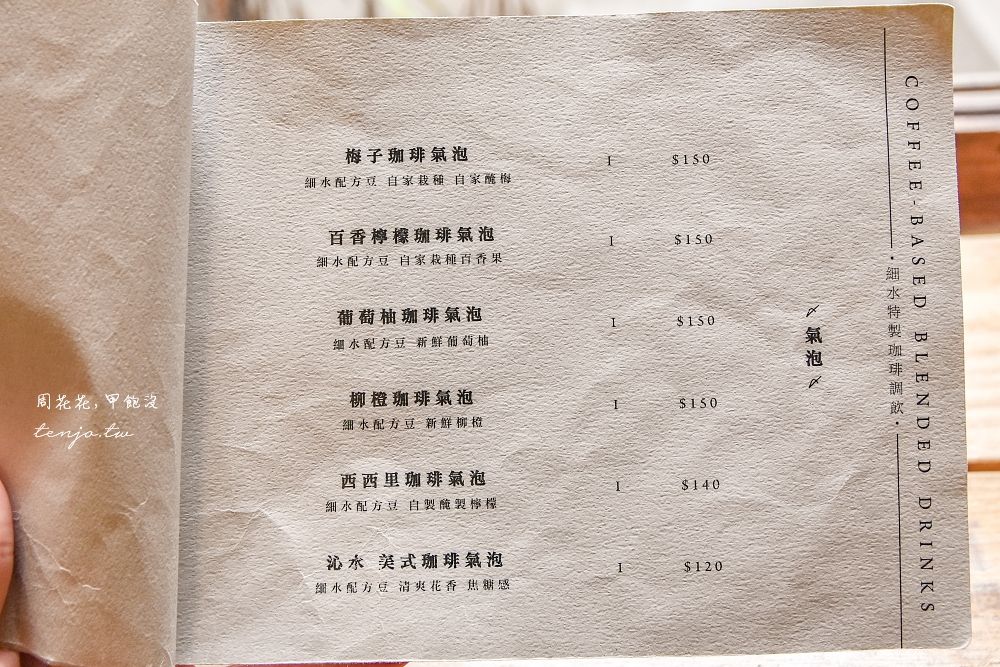 梅子珈琲氣泡 I $150
細水配方豆 自家栽種 自家醃梅
百香檸檬珈琲氣泡 I $150
細水配方豆 自家栽種百香果
葡萄柚珈琲氣泡 I $150
細水配方豆 新鮮葡萄柚
柳橙珈琲氣泡 I $150
細水配方豆 新鮮柳橙
西西里珈琲氣泡 I $140
細水配方豆 自製醃製檸檬
沁水 美式珈琲氣泡 I $120
細水配方豆 清爽花香 焦糖感
氣泡
·細水特製珈琲調飲·
COFFEE-BASED BLENDED DRINKS
周花花,甲飽沒
tenjo.tw